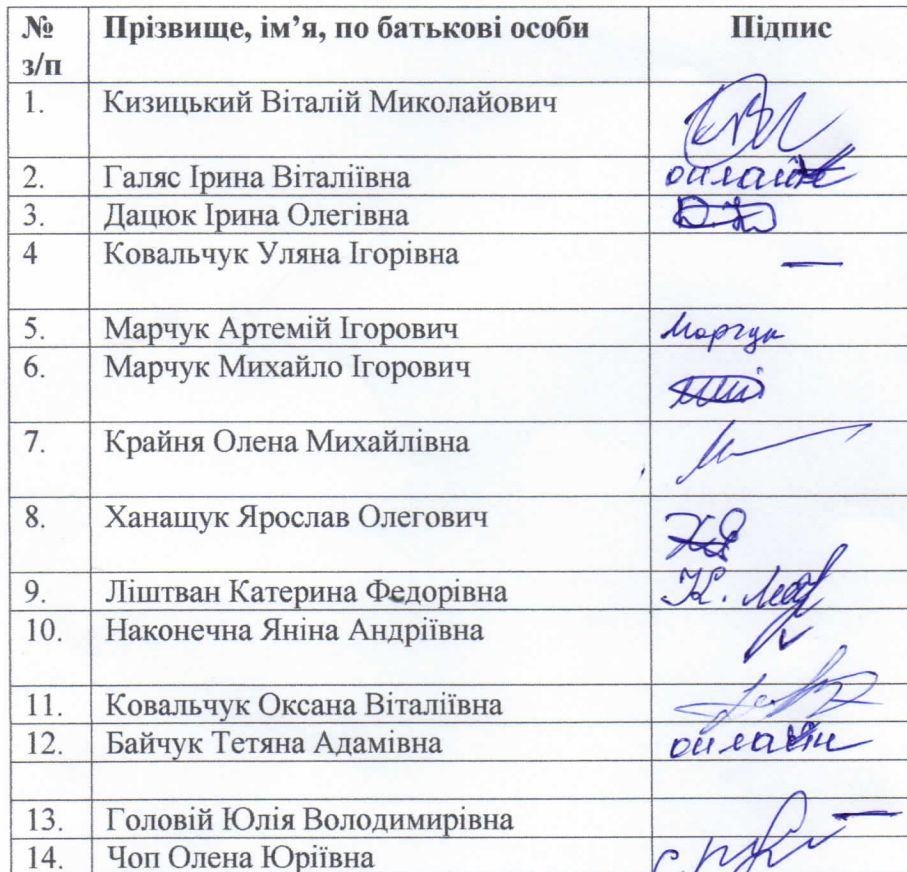 № з/п Прізвище, ім’я, по батькові особи Підпис
1. Кизицький Віталій Миколайович
2. Галяс Ірина Віталіївна онлайн
3. Дацюк Ірина Олегівна
4 Ковальчук Уляна Ігорівна —
5. Марчук Артемій Ігорович Марчук
6. Марчук Михайло Ігорович
7. Крайня Олена Михайлівна
8. Ханащук Ярослав Олегович
9. Ліштван Катерина Федорівна
10. Наконечна Яніна Андріївна
11. Ковальчук Оксана Віталіївна
12. Байчук Тетяна Адамівна онлайн
13. Головій Юлія Володимирівна —
14. Чоп Олена Юріївна